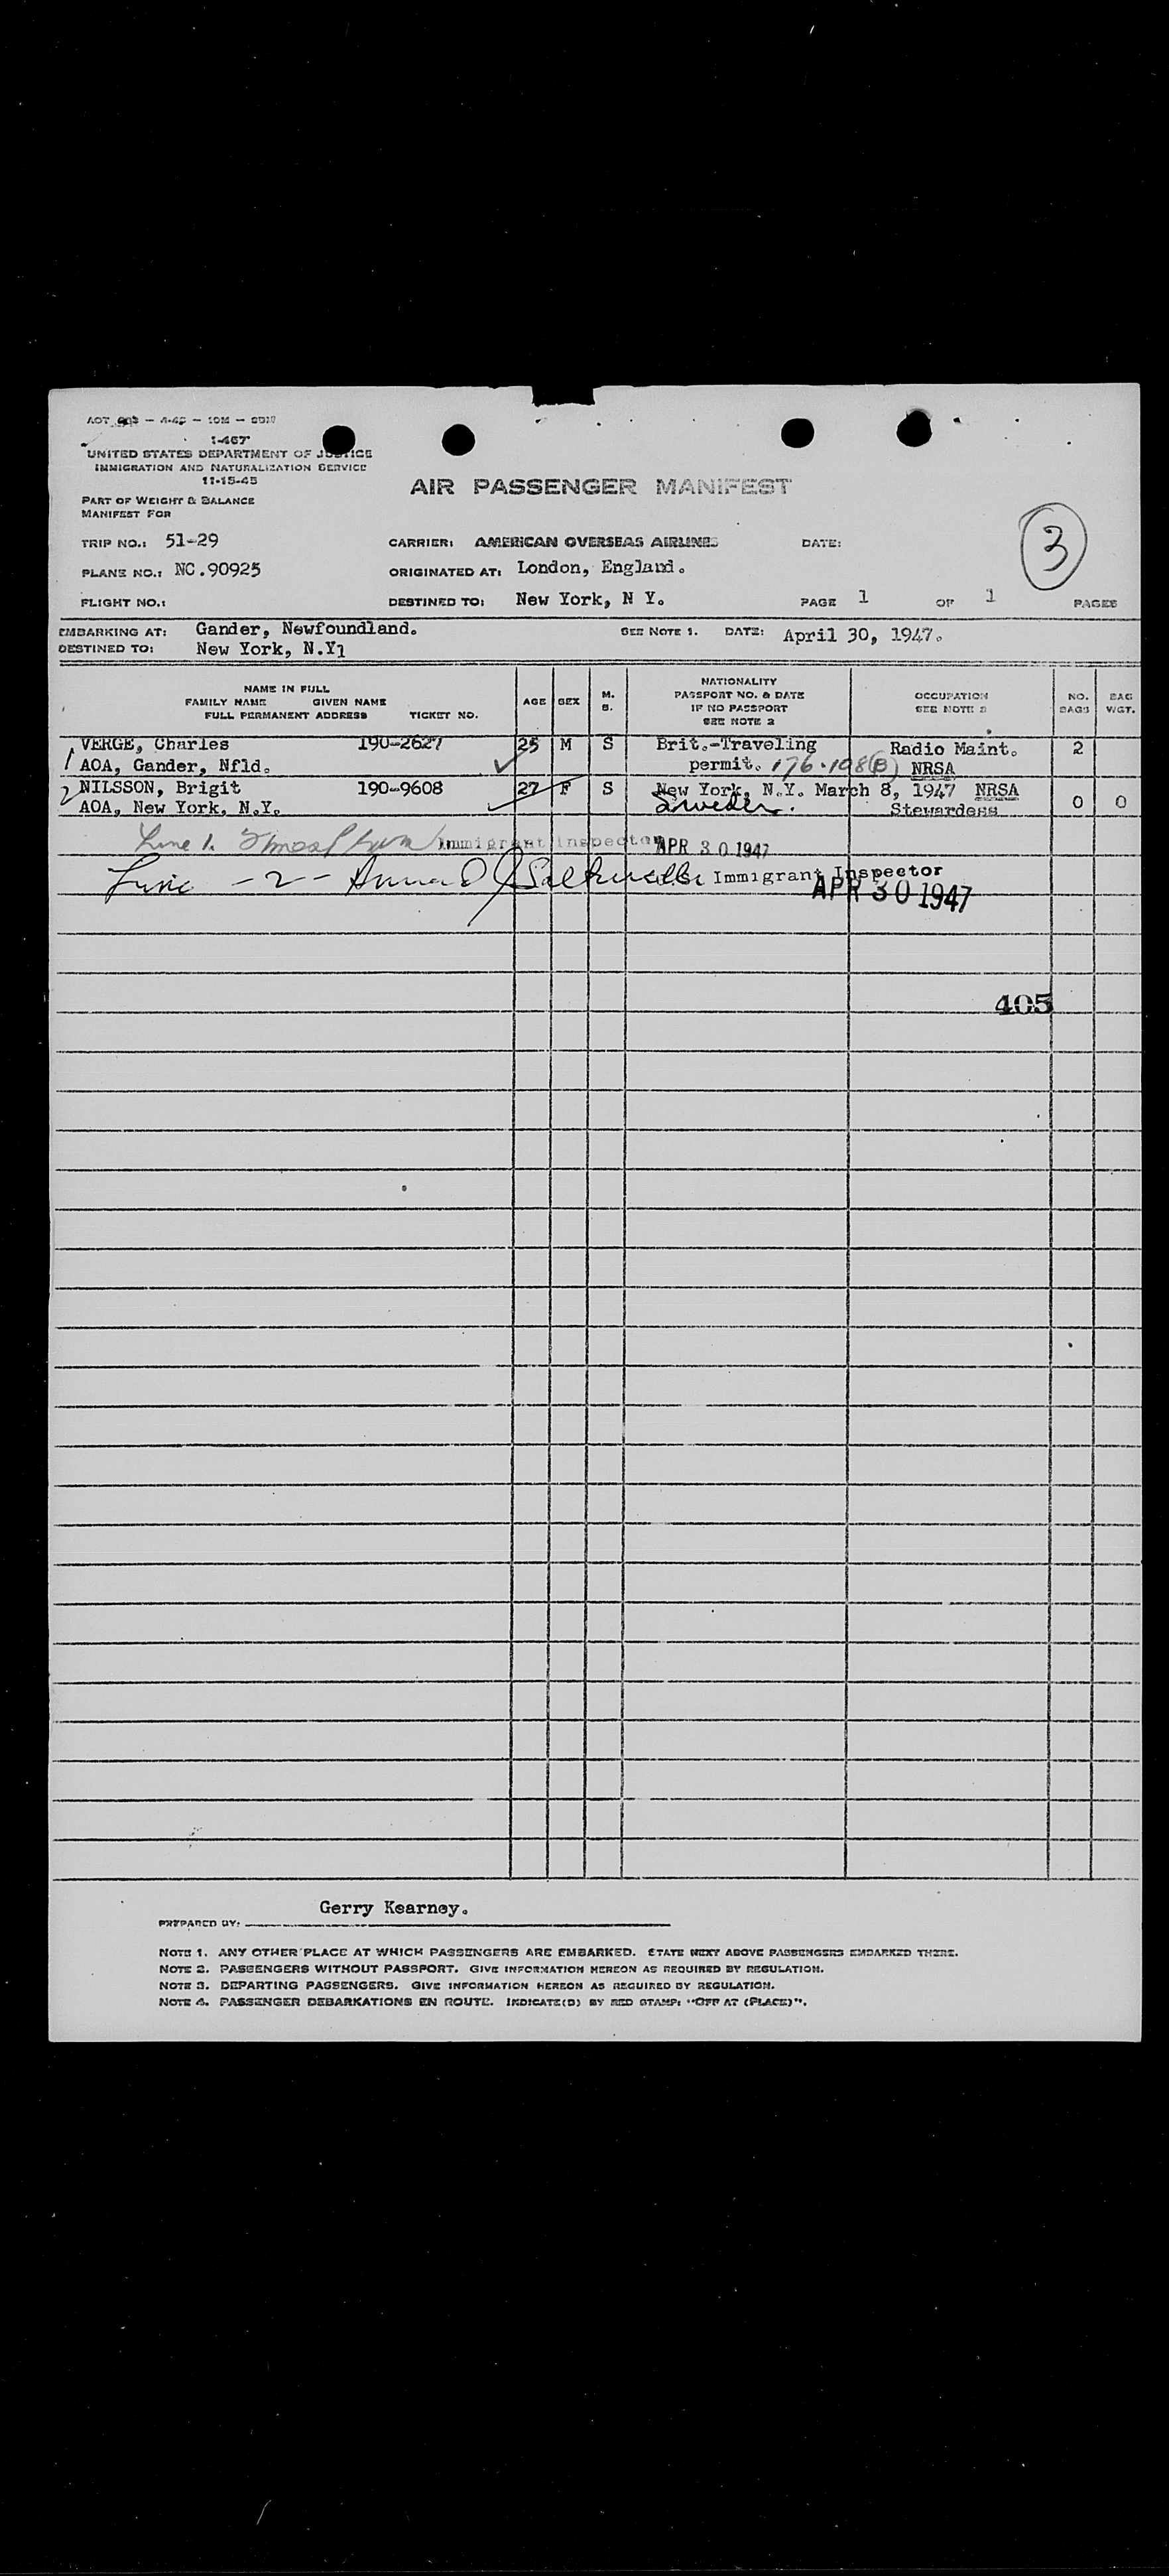 1-467
UNITED STATES DEPARTMENT OF JUSTICE
IMMIGRATION AND NATURALIZATION SERVICE
11-15-45
AIR PASSENGER MANIFEST
PART OF WEIGHT & BALANCE
MANIFEST FOR
TRIP NO.: 51-29 CARRIER: AMERICAN OVERSEAS AIRLINES DATE: 3
PLANE NO.: NC.90925 ORIGINATED AT: London, England.
FLIGHT NO.: DESTINED TO: New York, N Y. PAGE 1 OF 1 PAGES
EMBARKING AT: Gander, Newfoundland. SEE NOTE 1. DATE: April 30, 1947.
DESTINED TO: New York, N.Y1
NAME IN FULL
FAMILY NAME GIVEN NAME
FULL PERMANENT ADDRESS TICKET NO.
AGE
SEX
M.
S.
NATIONALITY
PASSPORT NO. & DATE
IF NO PASSPORT
SEE NOTE 2
OCCUPATION
SEE NOTE 3
NO.
BAGS
BAG
WGT.
1 VERGE, Charles 190-2627 25 M S Brit.-Traveling Radio Maint. 2
AOA, Gander, Nfld. permit. 176.108(B) NRSA
2 NILSSON, Brigit 190-9608 27 F S New York, N.Y. March 8, 1947 NRSA
AOA, New York, N.Y. Sweden. Stewardess 0 0
Line 1. Immigrant Inspector APR 30 1947
Line -2- Immigrant Inspector
APR 30 1947
405
Gerry Kearney.
PREPARED BY:
NOTE 1. ANY OTHER PLACE AT WHICH PASSENGERS ARE EMBARKED. STATE NEXT ABOVE PASSENGERS EMBARKED THERE.
NOTE 2. PASSENGERS WITHOUT PASSPORT. GIVE INFORMATION HEREON AS REQUIRED BY REGULATION.
NOTE 3. DEPARTING PASSENGERS. GIVE INFORMATION HEREON AS REQUIRED BY REGULATION.
NOTE 4. PASSENGER DEBARKATIONS EN ROUTE. INDICATE(D) BY RED STAMP: "OFF AT (PLACE)".